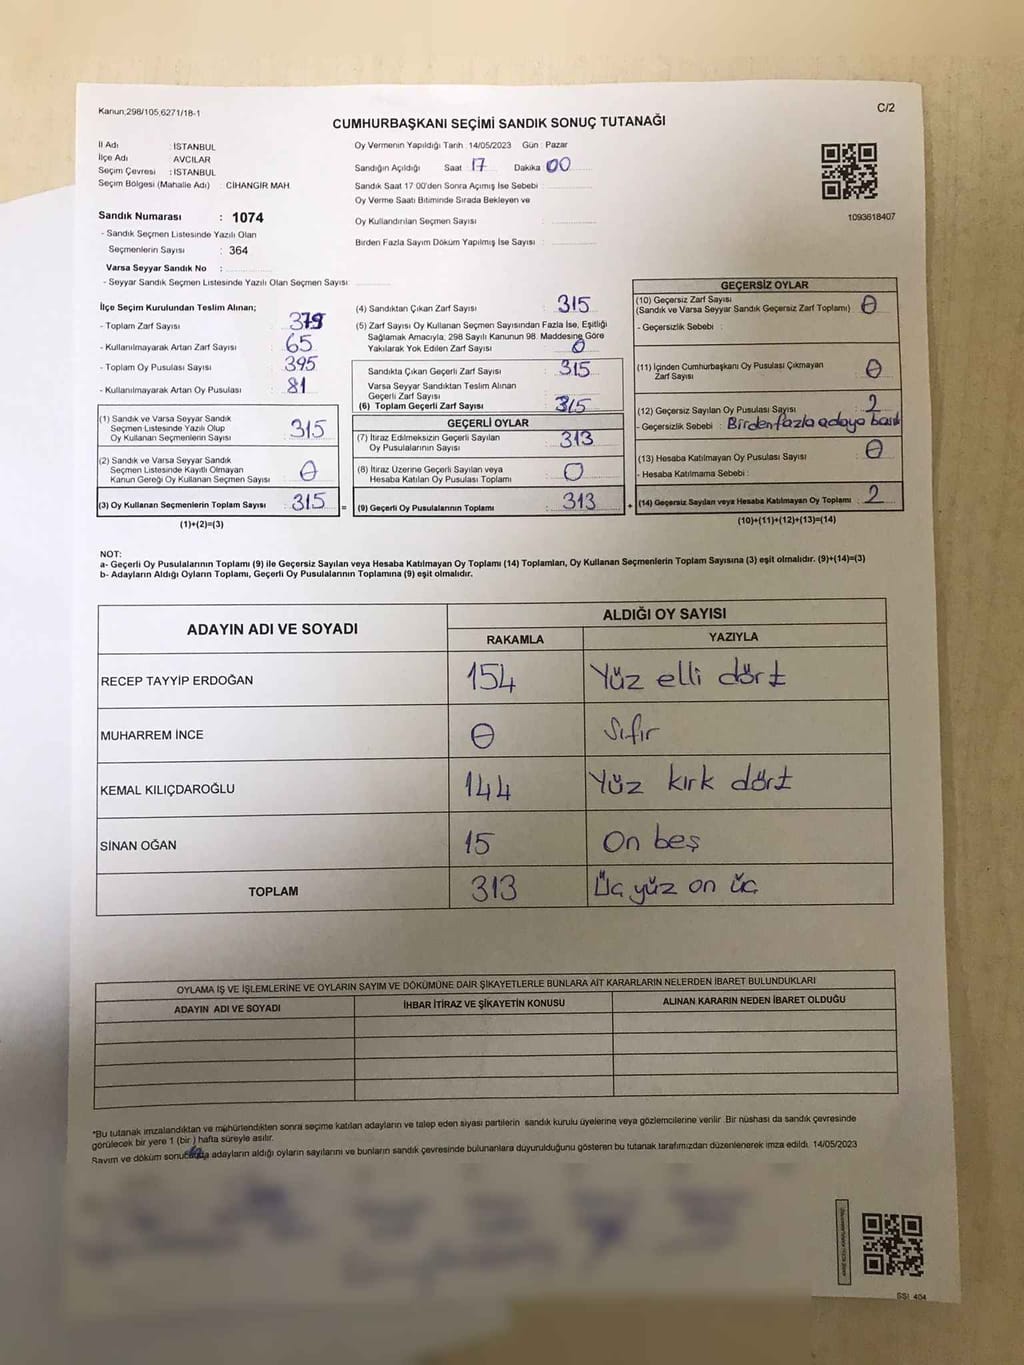 Kanun,298/105,6271/18-1
C/2
CUMHURBAŞKANI SEÇİMİ SANDIK SONUÇ TUTANAĞI
İl Adı : İSTANBUL
İlçe Adı AVCILAR
Seçim Çevresi : İSTANBUL
Seçim Bölgesi (Mahalle Adı) : CİHANGİR MAH.
Sandık Numarası : 1074
- Sandık Seçmen Listesinde Yazılı Olan
Seçmenlerin Sayısı : 364
Varsa Seyyar Sandık No :
- Seyyar Sandık Seçmen Listesinde Yazılı Olan Seçmen Sayısı
Oy Vermenin Yapıldığı Tarih :14/05/2023 Gün : Pazar
Sandığın Açıldığı Saat : 17 Dakika : 00
Sandık Saat 17 00'den Sonra Açımış İse Sebebi :
Oy Verme Saati Bitiminde Sırada Bekleyen ve
Oy Kullandırılan Seçmen Sayısı :
Birden Fazla Sayım Döküm Yapılmış İse Sayısı :
1093618407
İlçe Seçim Kurulundan Teslim Alınan;
- Toplam Zarf Sayısı : 379
- Kullanılmayarak Artan Zarf Sayısı : 65
- Toplam Oy Pusulası Sayısı : 395
- Kullanılmayarak Artan Oy Pusulası : 81
(1) Sandık ve Varsa Seyyar Sandık
Seçmen Listesinde Yazılı Olup
Oy Kullanan Seçmenlerin Sayısı : 315
(2) Sandık ve Varsa Seyyar Sandık
Seçmen Listesinde Kayıtlı Olmayan
Kanun Gereği Oy Kullanan Seçmen Sayısı : 0
(3) Oy Kullanan Seçmenlerin Toplam Sayısı : 315 =
(1)+(2)=(3)
(4) Sandıktan Çıkan Zarf Sayısı : 315
(5) Zarf Sayısı Oy Kullanan Seçmen Sayısından Fazla İse, Eşitliği
Sağlamak Amacıyla; 298 Sayılı Kanunun 98. Maddesine Göre
Yakılarak Yok Edilen Zarf Sayısı : 0
Sandıkta Çıkan Geçerli Zarf Sayısı : 315
Varsa Seyyar Sandıktan Teslim Alınan
Geçerli Zarf Sayısı :
(6) Toplam Geçerli Zarf Sayısı : 315
GEÇERLİ OYLAR
(7) İtiraz Edilmeksizin Geçerli Sayılan
Oy Pusulalarının Sayısı : 313
(8) İtiraz Üzerine Geçerli Sayılan veya
Hesaba Katılan Oy Pusulası Toplamı : 0
(9) Geçerli Oy Pusulalarının Toplamı : 313 +
GEÇERSİZ OYLAR
(10) Geçersiz Zarf Sayısı
(Sandık ve Varsa Seyyar Sandık Geçersiz Zarf Toplamı) : 0
- Geçersizlik Sebebi :
(11) İçinden Cumhurbaşkanı Oy Pusulası Çıkmayan
Zarf Sayısı : 0
(12) Geçersiz Sayılan Oy Pusulası Sayısı : 2
- Geçersizlik Sebebi : Birden fazla adaya
(13) Hesaba Katılmayan Oy Pusulası Sayısı : 0
- Hesaba Katılmama Sebebi :
(14) Geçersiz Sayılan veya Hesaba Katılmayan Oy Toplamı : 2
(10)+(11)+(12)+(13)=(14)
NOT:
a- Geçerli Oy Pusulalarının Toplamı (9) ile Geçersiz Sayılan veya Hesaba Katılmayan Oy Toplamı (14) Toplamları, Oy Kullanan Seçmenlerin Toplam Sayısına (3) eşit olmalıdır. (9)+(14)=(3)
b- Adayların Aldığı Oyların Toplamı, Geçerli Oy Pusulalarının Toplamına (9) eşit olmalıdır.
ADAYIN ADI VE SOYADI
ALDIĞI OY SAYISI
RAKAMLA YAZIYLA
RECEP TAYYİP ERDOĞAN 154 Yüz elli dört
MUHARREM İNCE 0 Sıfır
KEMAL KILIÇDAROĞLU 144 Yüz kırk dört
SİNAN OĞAN 15 On beş
TOPLAM 313 Üç yüz on üç
OYLAMA İŞ VE İŞLEMLERİNE VE OYLARIN SAYIM VE DÖKÜMÜNE DAİR ŞİKAYETLERLE BUNLARA AİT KARARLARIN NELERDEN İBARET BULUNDUKLARI
ADAYIN ADI VE SOYADI İHBAR İTİRAZ VE ŞİKAYETİN KONUSU ALINAN KARARIN NEDEN İBARET OLDUĞU
*Bu tutanak imzalandıktan ve mühürlendikten sonra seçime katılan adayların ve talep eden siyasi partilerin sandık kurulu üyelerine veya gözlemcilerine verilir. Bir nüshası da sandık çevresinde
görülecek bir yere 1 (bir ) hafta süreyle asılır.
Sayım ve döküm adayların aldığı oyların sayılarını ve bunların sandık çevresinde bulunanlara duyurulduğunu gösteren bu tutanak tarafımızdan düzenlenerek imza edildi. 14/05/2023
SSİ_404